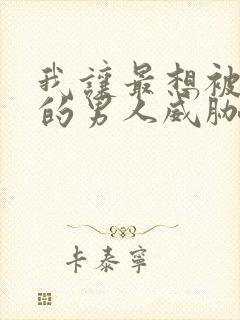 我讓最想被
的男人威胁
卡泰寧